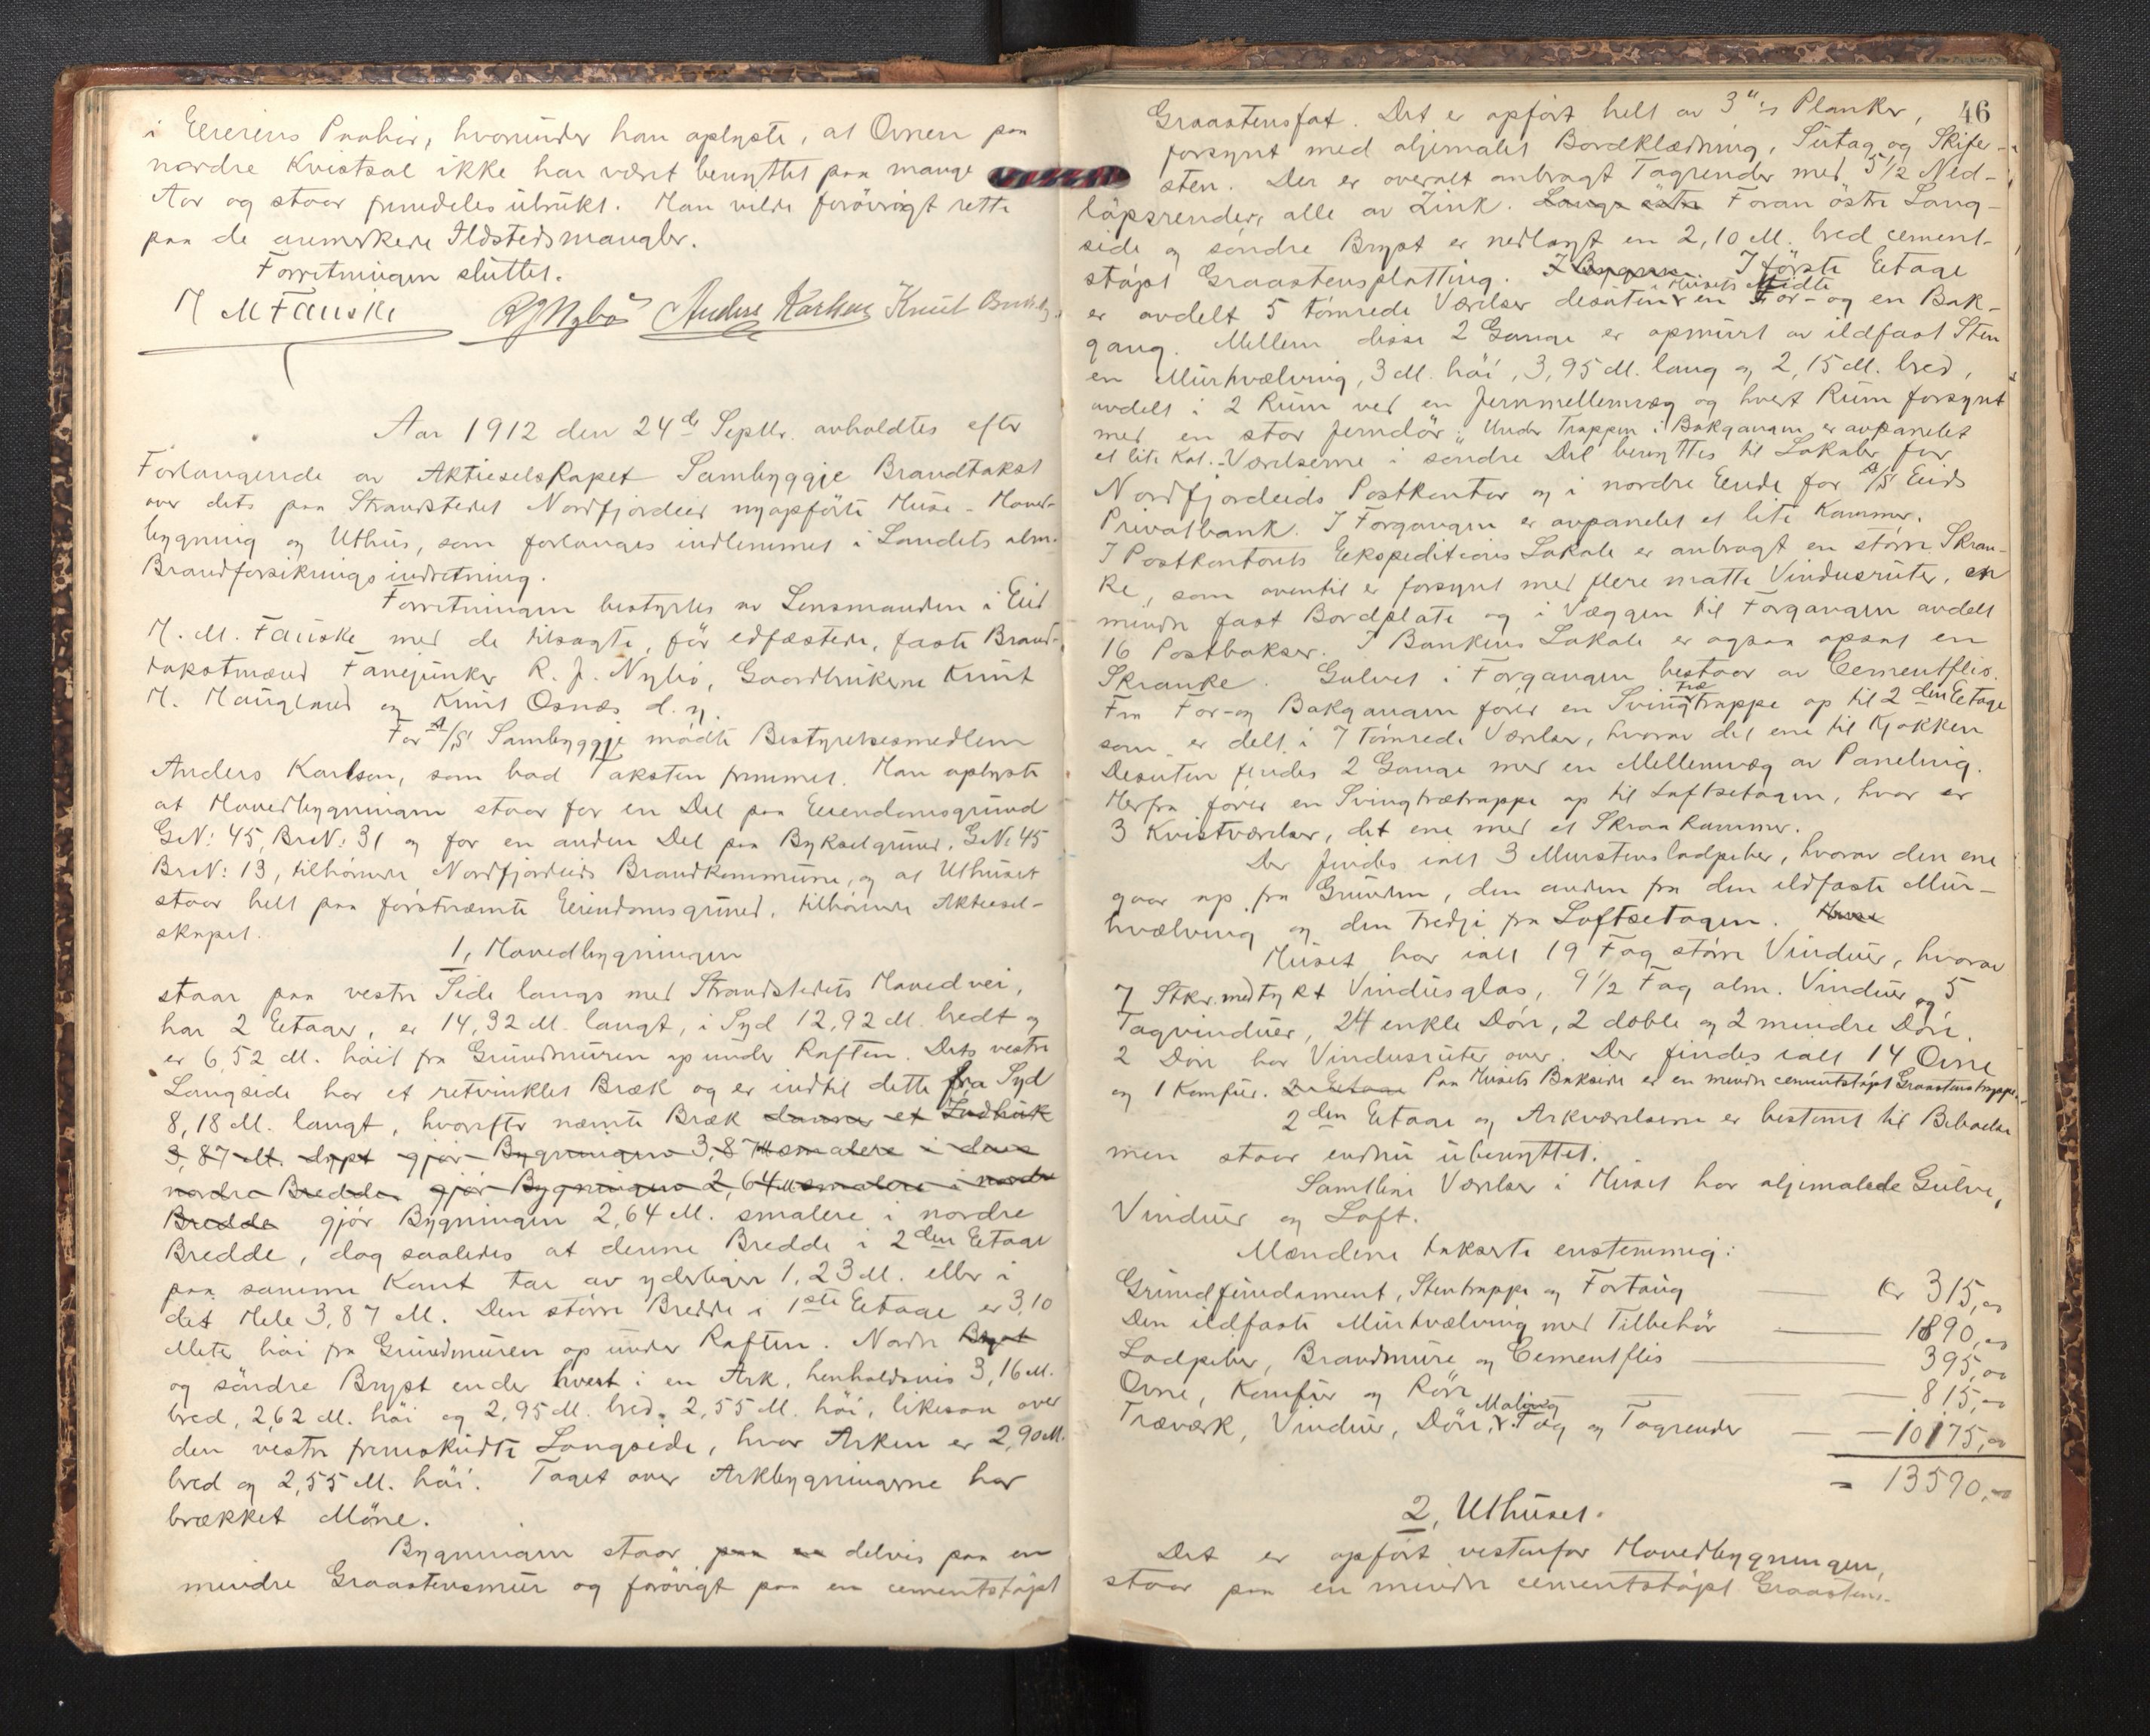 i Eierens Paahør, hvorunder han oplyste, at Ovnen paa
nordre Kvistsal ikke har været benyttet paa mange
Aar og staar fremdeles ubrukt. Han vilde forøvrigt rette
paa de anmerkede Ildstedsmangler.
Forretningen sluttet.
H M Fauske RJ Nybö Anders Karlson Knut Osnes
Aar 1912 den 24de Septbr. avholdtes efter
Forlangende av Aktieselskapet Sambyggje Brandtakst
over dets paa Strandstedet Nordfjordeid nyopförte Huse - Hoved-
bygning og Uthus, som forlanges indlemmet i Landets alm.
Brandforsikringsindretning.
Forretningen bestyrtes av Lensmanden i Eid
H. M. Fauske med de tilsagte, før edfæstede, faste Brand-
takstmænd Fanejunker R. J. Nybö, Gaardbrukerne Knut
H. Haugland og Knut Osnæs d. y.
For A/S Sambyggje mødte Bestyrelsesmedlem
Anders Karlson, som bad Taksten fremmet. Han oplyste
at Hovedbygningen staar for en Del paa Eiendomsgrund
G.N: 45, Br.N: 31 og for en anden Del paa Bykselgrund, G.N: 45
Br.N: 13, tilhørende Nordfjordeids Brandkommune, og at Uthuset
staar helt paa førstnæmte Eiendomsgrund, tilhørende Aktiesel-
skapet.
1, Hovedbygningen
staar paa vestre Side langs med Strandstedets Hovedvei,
har 2 Etager, er 14,32 M. langt, i Syd 12,92 M. bredt og
er 6,52 M. høit fra Grundmuren op under Raften. Dets vestre
Langside har et retvinklet Bræk og er indtil dette fra Syd
8,18 M. langt, hvorefter næmte Bræk danner et Indhuk
3,87 M. dypt gjør Bygningen 3,87 M smalere i dens
nordre Bredde gjør Bygningen 2,64 M smalere i nordre
Bredde gjør Bygningen 2,64 M. smalere i nordre
Bredde, dog saaledes at denne Bredde i 2den Etage
paa samme Kant tar av yderligere 1,23 M. eller i
det Hele 3,87 M. Den større Bredde i 1ste Etage er 3,10
Meter høi fra Grundmuren op under Raften. Nordre Bryst
og søndre Bryst ender hvert i en Ark, henholdsvis 3,16 M.
bred, 2,62 M. høi og 2,95 M. bred, 2,55 M. høi, likesom over
den vestre fremskudte Langside, hvor Arken er 2,90 M.
bred og 2,55 M. høi. Taget over Arkbygningerne har
brækket Møne.
Bygningen staar paa en delvis paa en
mindre Graastensmur og forøvrigt paa en cementstøpt
46
Graastensfot. Det er opført helt av 3"s Planker,
forsynt med oljemalet Bordklædning, Sutag og Skifer-
sten. Der er overalt anbragt Tagrender med 5 1/2 Ned-
løpsrender, alle av Zink. Langs østre Foran østre Lang-
side og søndre Bryst er nedlagt en 2,10 M. bred cement-
støpt Graastensplatting. I Bygnin. I første Etage
er avdelt 5 tømrede Værelser desuten i Husets Midte en For- og en Bak-
gang. Mellem disse 2 Gange er opmurt av ildfast Sten
en Murhvælving, 3 M. høi, 3,95 M. lang og 2,15 M. bred,
avdelt i 2 Rum ved en Jernmellemvæg og hvert Rum forsynt
med en stor Jerndør. Under Trappen i Bakgangen er avpanelet
et lite Kot. Værelserne i søndre Del benyttes til Lokaler for
Nordfjordeids Postkontor og i nordre Ende for A/S Eids
Privatbank. I Forgangen er avpanelet et lite Kammer.
I Postkontorets Ekspeditions Lokale er anbragt en større Skran-
ke, som oventil er forsynt med flere matte Vindusruter, en
mindre fast Bordplate og i Væggen til Forgangen avdelt
16 Postbokser. I Bankens Lokale er ogsaa opsat en
Skranke. Gulvet i Forgangen bestaar av Cementflis.
Fra For- og Bakgangen fører en Svingtrætrappe op til 2den Etage
som er delt i 7 tømrede Værelser, hvorav det ene til Kjøkken
Desuten findes 2 Gange med en Mellemvæg av Paneling.
Herfra fører en Svingtrætrappe op til Loftsetagen, hvor er
3 Kvistværelser, det ene med et Skraakammer.
Der findes ialt 3 Murstensladpiber, hvorav den ene
gaar op fra Grunden, den anden fra den ildfaste Mur-
hvælving og den tredje fra Loftsetagen. Huse
Huset har ialt 19 Fag større Vinduer, hvorav
7 Stkr. med tykt Vindusglas, 9 1/2 Fag alm. Vinduer og 5
Tagvinduer, 24 enkle Døre, 2 doble og 2 mindre Døre.
2 Døre har Vindusruter over. Der findes ialt 14 Ovne
og 1 Komfur. 2. Etage Paa Husets Bakside er en mindre cementstøpt Graastenstrappe.
2den Etage og Arkværelserne er bestemt til Beboelse
men staar endnu ubenyttet.
Samtlige Værelser i Huset har oljemalede Gulve,
Vinduer og Loft.
Mændene takserte enstemmig:
Grundfundament, Stentrappe og Fortaug — Kr 315,00
Den ildfaste Murhvælving med Tilbehør — 1890,00
Ladpiber, Brandmure og Cementflis — 395,00
Ovne, Komfur og Rør — 815,00
Træværk, Vinduer, Døre, Maling, Tag og Tagrender — 10175,00
= 13590,00
2, Uthuset.
Det er opført vestenfor Hovedbygningen,
staar paa en mindre cementstøpt Graastens-